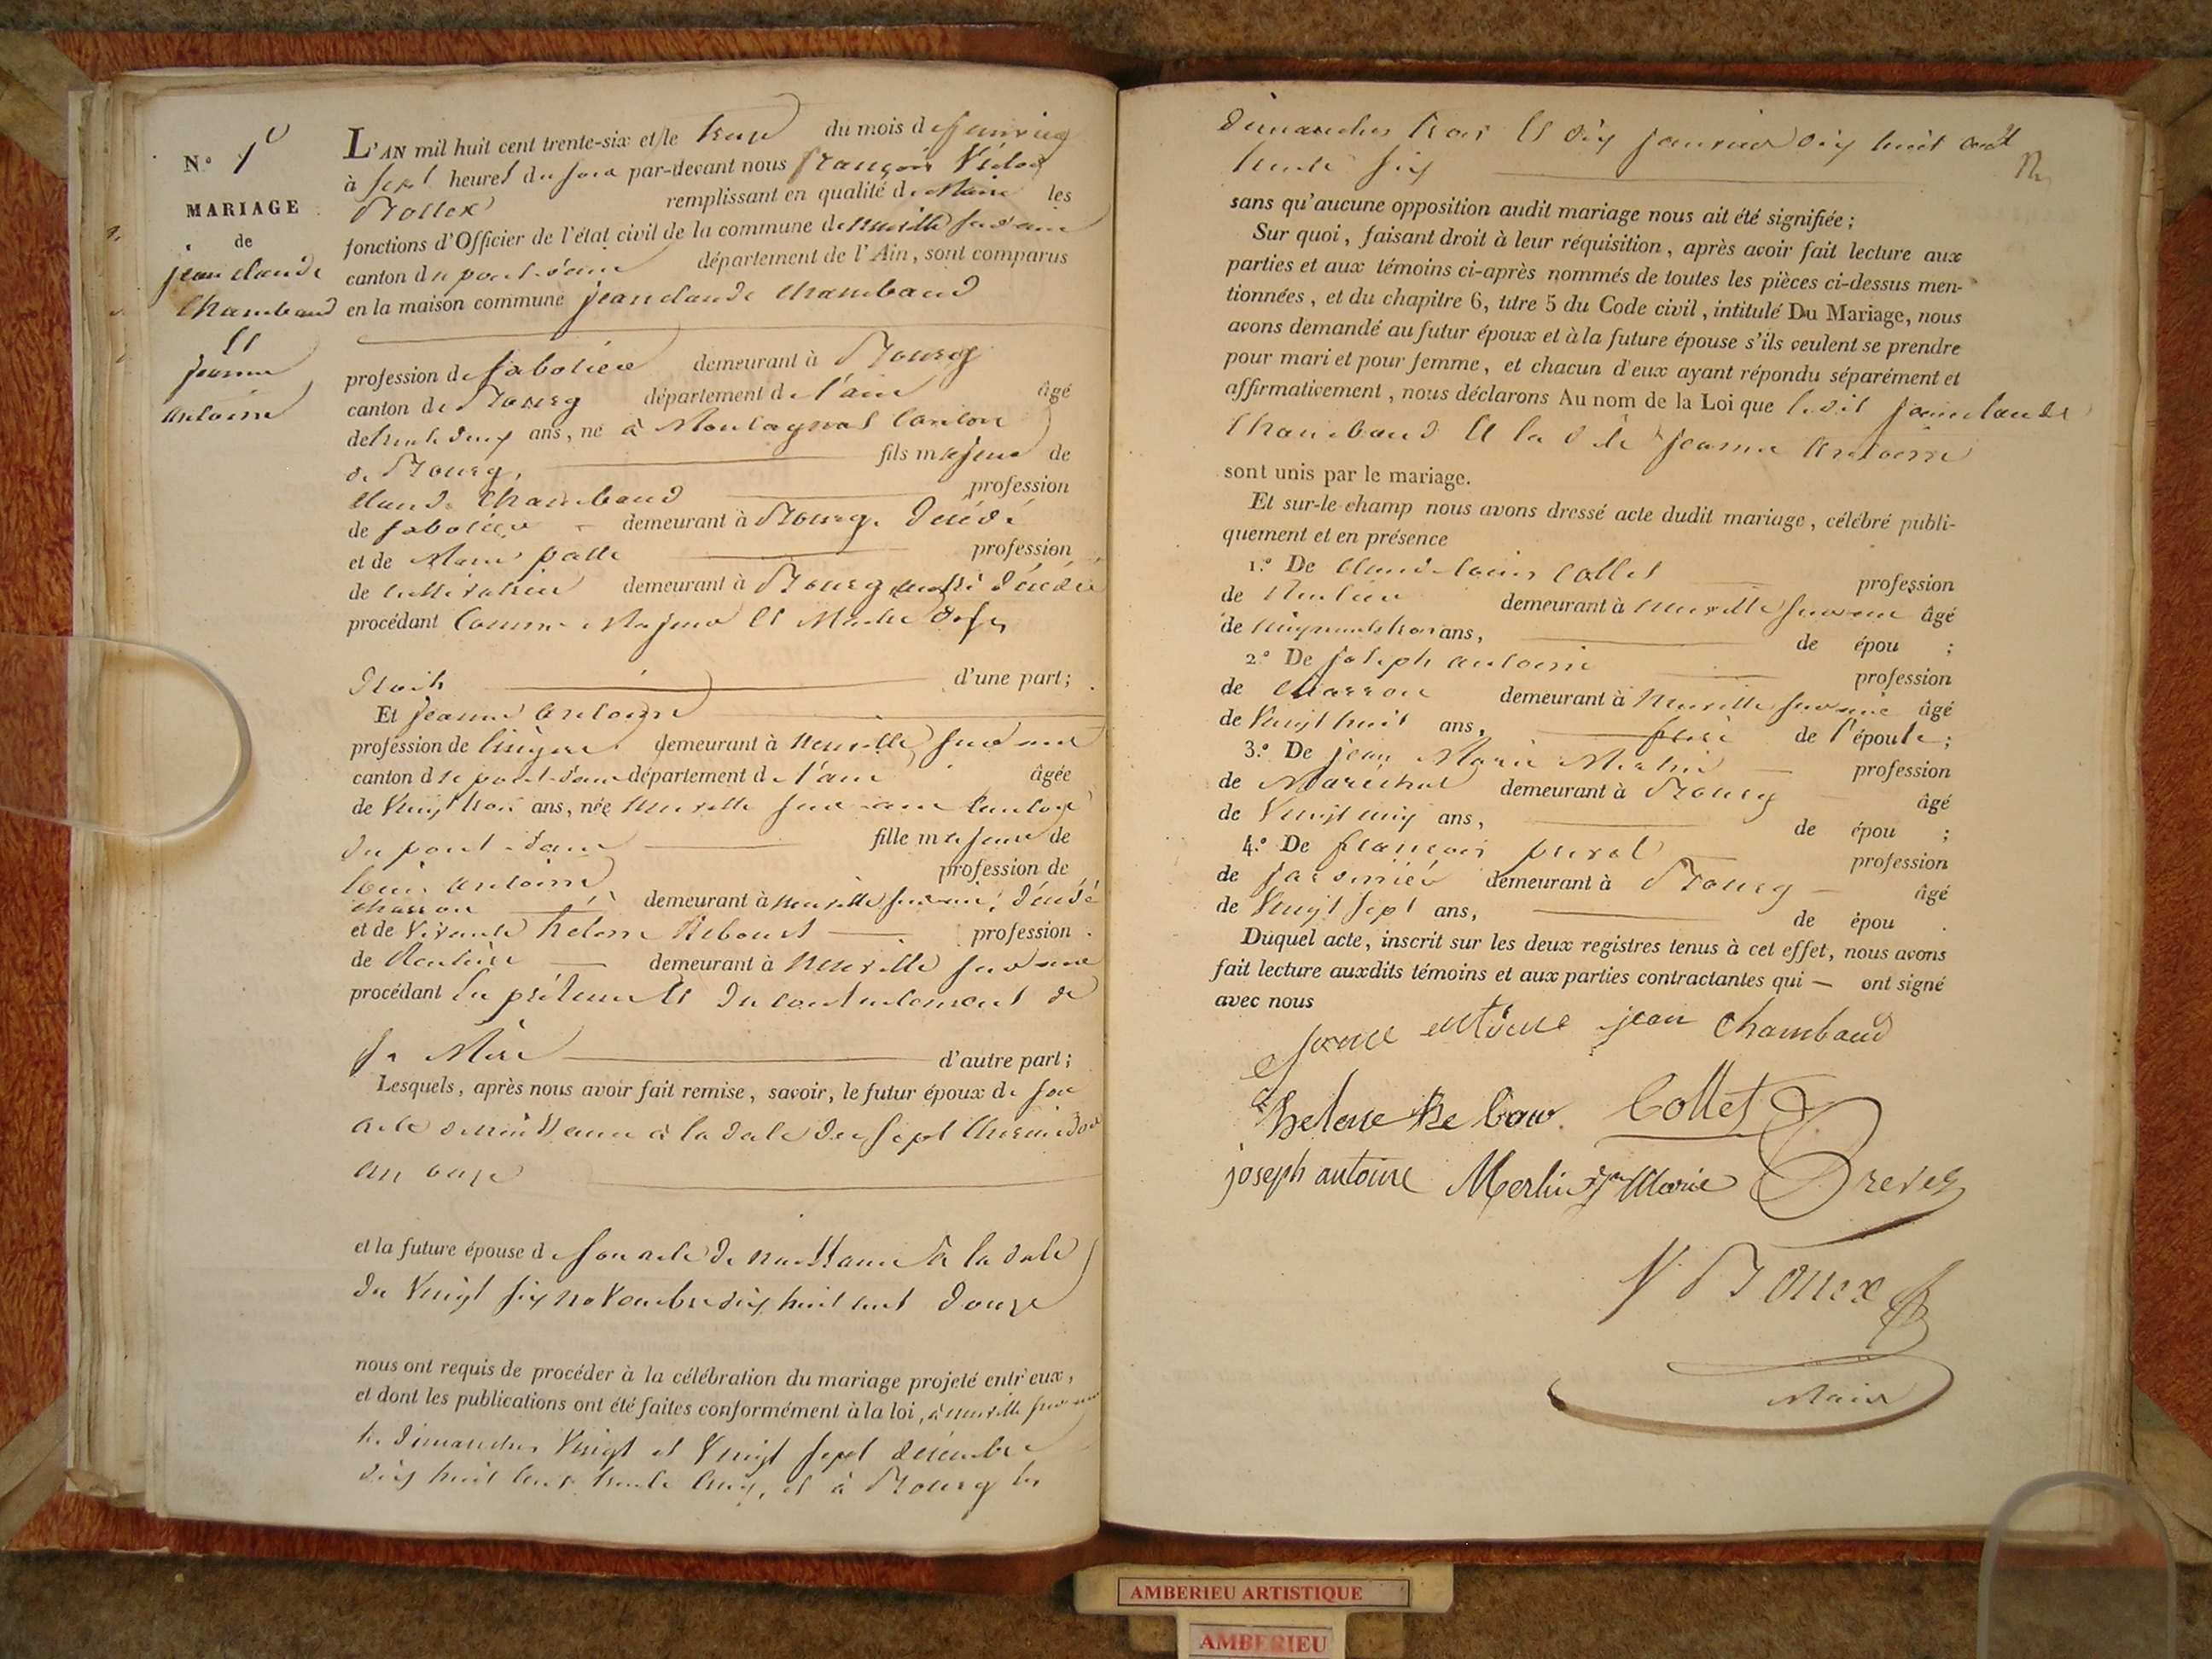 N.° 1er
MARIAGE
de
jean claude
Chambaud
Et
jeanne
antoine
L'AN mil huit cent trente-six et le treize du mois de janvier
à sept heures du soir par-devant nous françois Victor
remplissant en qualité de Maire les
fonctions d'Officier de l'état civil de la commune de neuville sur ain
canton du pont-d'ain département de l'Ain, sont comparus
en la maison commune jean claude chambaud
profession de sabotier demeurant à Bourg
canton de Bourg département de l'ain âgé
de trente deux ans, né à Montagnat Canton
de Bourg, fils majeur de
Claude Chambaud profession
de sabotier demeurant à Bourg. Décédé
et de Marie palle profession
de cultivatrice demeurant à Bourg aussi décédée
procédant Comme Majeur et Maitre de ses
Droits d'une part;
Et jeanne antoine
profession de lingère demeurant à neuville sur ain
canton de pont-d'ain département de l'ain âgée
de Vingt trois ans, née neuville sur ain canton
du pont-d'ain fille majeure de
louis antoine profession de
charron demeurant à neuville sur ain, décédé
et de vivante helene Rebout profession
de Rentière demeurant à Neuville sur ain
procédant en présence et du consentement de
sa Mère d'autre part;
Lesquels, après nous avoir fait remise, savoir, le futur époux de son
acte de naissance à la date du sept thermidor
an onze
et la future épouse de son acte de naissance à la date
du Vingt six novembre dix huit cent douze
nous ont requis de procéder à la célébration du mariage projeté entr'eux,
et dont les publications ont été faites conformément à la loi, à neuville sur ain
les dimanches Vingt et Vingt sept décembre
dix huit cent trente cinq, et à Bourg les
dimanches trois et dix janvier dix huit cent
trente six
sans qu'aucune opposition audit mariage nous ait été signifiée;
Sur quoi, faisant droit à leur réquisition, après avoir fait lecture aux
parties et aux témoins ci-après nommés de toutes les pièces ci-dessus men-
tionnées, et du chapitre 6, titre 5 du Code civil, intitulé Du Mariage, nous
avons demandé au futur époux et à la future épouse s'ils veulent se prendre
pour mari et pour femme, et chacun d'eux ayant répondu séparément et
affirmativement, nous déclarons Au nom de la Loi que le dit jean claude
Chambaud Et la dite jeanne Antoine
sont unis par le mariage.
Et sur-le-champ nous avons dressé acte dudit mariage, célébré publi-
quement et en présence
1.° De Claude louis Collet profession
de Rentier demeurant à neuville sur ain âgé
de cinquante trois ans, de épou ;
2.° De joseph antoine profession
de charron demeurant à Neuville sur ain âgé
de Vingt huit ans, frère de l'épouse;
3.° De jean Marie Merlin profession
de Maréchal demeurant à Bourg âgé
de Vingt cinq ans, de épou ;
4.° De françois profession
de jardinier demeurant à Bourg âgé
de Vingt sept ans, de épou .
Duquel acte, inscrit sur les deux registres tenus à cet effet, nous avons
fait lecture auxdits témoins et aux parties contractantes qui — ont signé
avec nous
antoine jean Chambaud
helene Re bou Collet
joseph antoine Merlin Jn Marie
Maire
AMBERIEU ARTISTIQUE
AMBERIEU